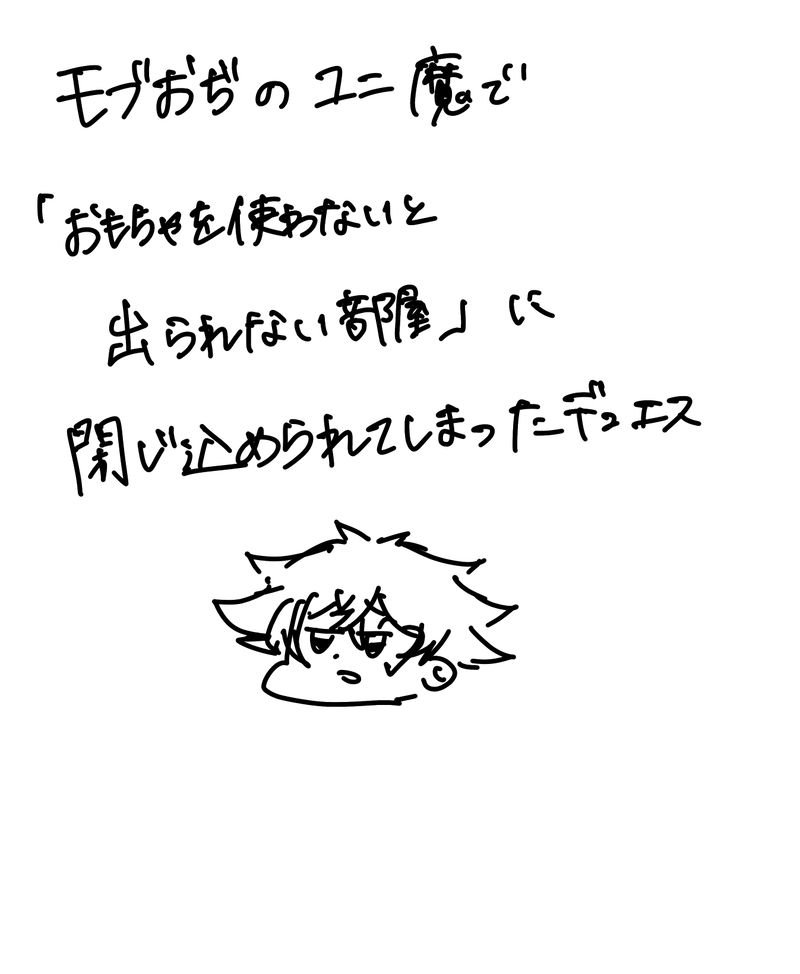 モブおぢのユニ魔で
「おもちゃを使わないと
出られない部屋」に
閉じ込められてしまったデュエス